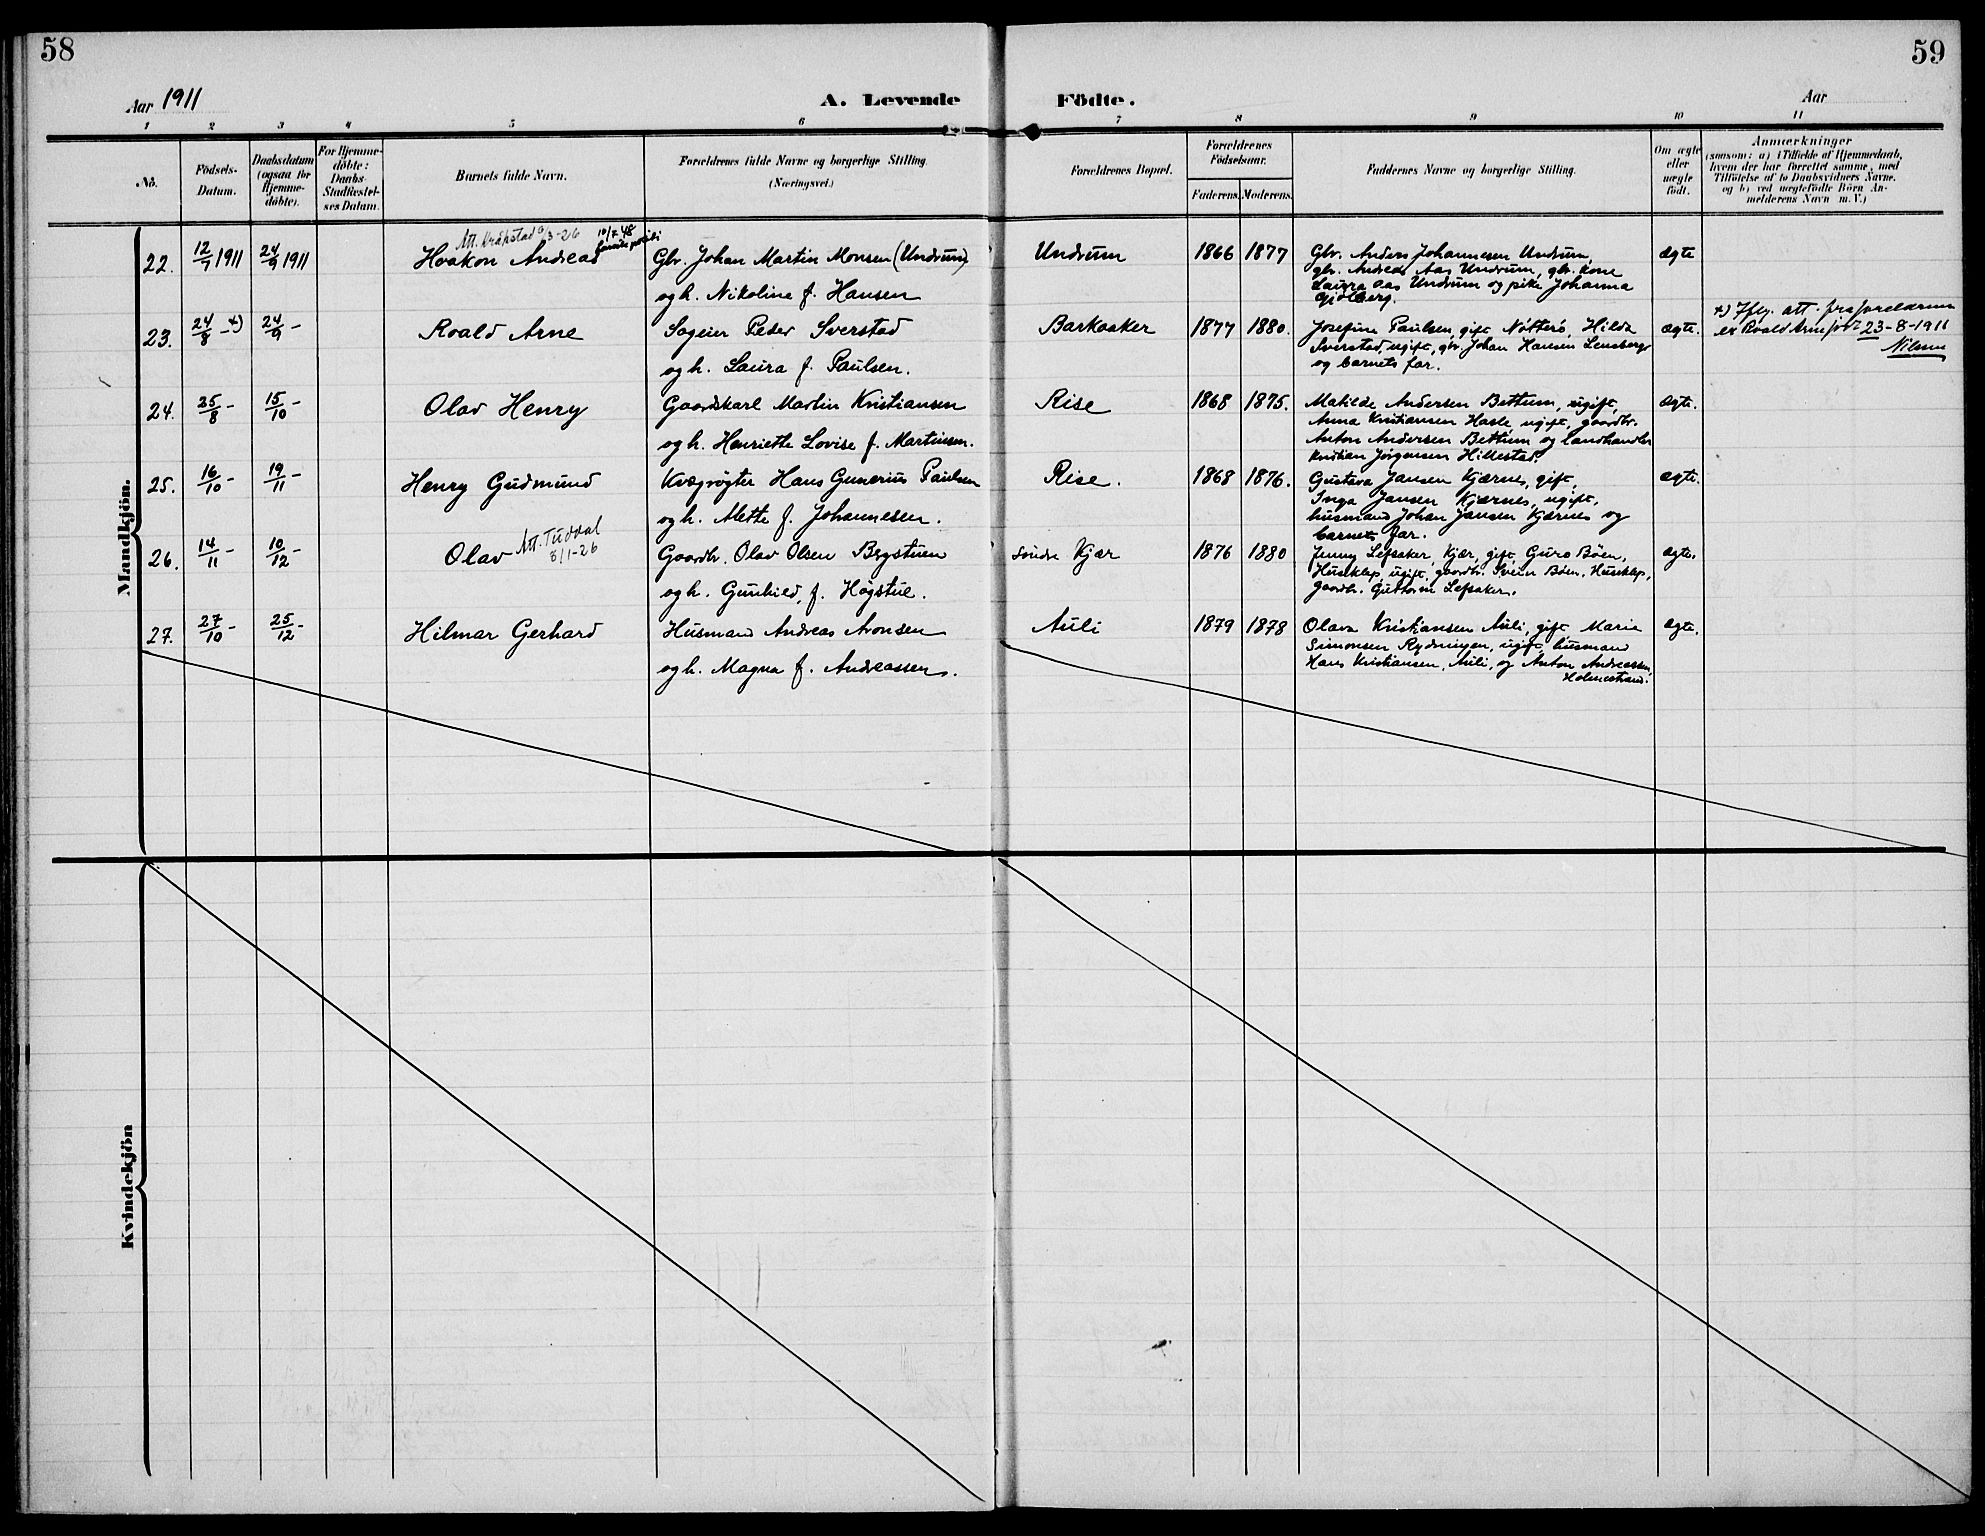 58
59
Aar 1911
A. Levende Födte.
Aar
1 2 3 4 5 6 7 8 9 10 11
No.
Födsels-
Datum.
Daabsdatum
(ogsaa for
Hjemme-
döbte).
For Hjemme-
döbte:
Daabs-
Stadfæstel-
ses Datum.
Barnets fulde Navn.
Forældrenes fulde Navne og borgerlige Stilling.
(Næringsvei.)
Forældrenes Bopæl.
Forældrenes
Födselsaar.
Faderens. Moderens.
Faddernes Navne og borgerlige Stilling.
Om ægte
eller
uægte
födt.
Anmærkninger
(saasom: a) i Tilfælde af Hjemmedaab,
hvem der har forrettet samme, med
Tilföielse af to Daabsvidners Navne.
og b) ved uægtefödte Börn An-
melderens Navn m. V.)
Mandkjön.
Att. Kråkstad 6/3-26
10/7 48
22. 12/7 1911 24/9 1911 Haakon Andreas Gbr. Johan Martin Monsen (Undrum) Undrum 1866 1877 Gbr. Anders Johannesen Undrum, ægte
gbr. Andreas Aas Undrum, gbr. kone
og h. Nikoline f. Hansen Laura Aas Undrum og pike Johanna
Gjölberg.
23. 24/8 - +) 24/9 - Roald Arne Sageier Peder Sverstad Barkaaker 1877 1880. Josefine Paulsen, gift Nötterö, Hilda ægte. +) Iflg. att. fra foreldrene
Sverstad, ugift, gbr. Johan Hansen er Roald Arne född 23-8-1911
og h. Laura f. Paulsen. og barnets far. Nilsen
24. 25/8 - 15/10 - Olav Henry Gaardskarl Martin Kristiansen Rise 1868 1875. Matilde Andersen Bettum, ugift, ægte.
Anna Kristiansen Hasle, ugift, gaardbr.
og h. Henriette Lovise f. Martinsen. Anton Andersen Bettum og landhandler
Kristian Jörgensen Hillestad.
25. 16/10 - 19/11 - Henry Gudmund Kvægrögter Hans Gunerius Paulsen Rise. 1868 1876. Gustava Jansen Kjærnes, gift, ægte.
Inga Jansen Kjærnes, ugift,
og h. Alette f. Johannesen. husmand Johan Jansen Kjærnes og
barnets far.
Att. Tuddal
8/1-26
26. 14/11 - 10/12 - Olav Gaardbr. Olav Olsen Bergstuen Söndre Kjær 1876 1880 Jenny Lefsaker, Kjær, gift, Guro Böen, ægte.
ugift, gaardbr. Svein Böen,
og h. Gunhild, f. Högstul. gaardbr. Guttorm Lefsaker.
27. 27/10 - 25/12 - Hilmar Gerhard Husmand Andreas Aronsen Auli 1879 1878 Olava Kristiansen Auli, gift, Marie ægte.
Simonsen Rydningen, ugift, husmand
og h. Magna f. Andreassen. Hans Kristiansen, Auli, og Anton Andreassen,
Holmestrand.
Kvindekjön